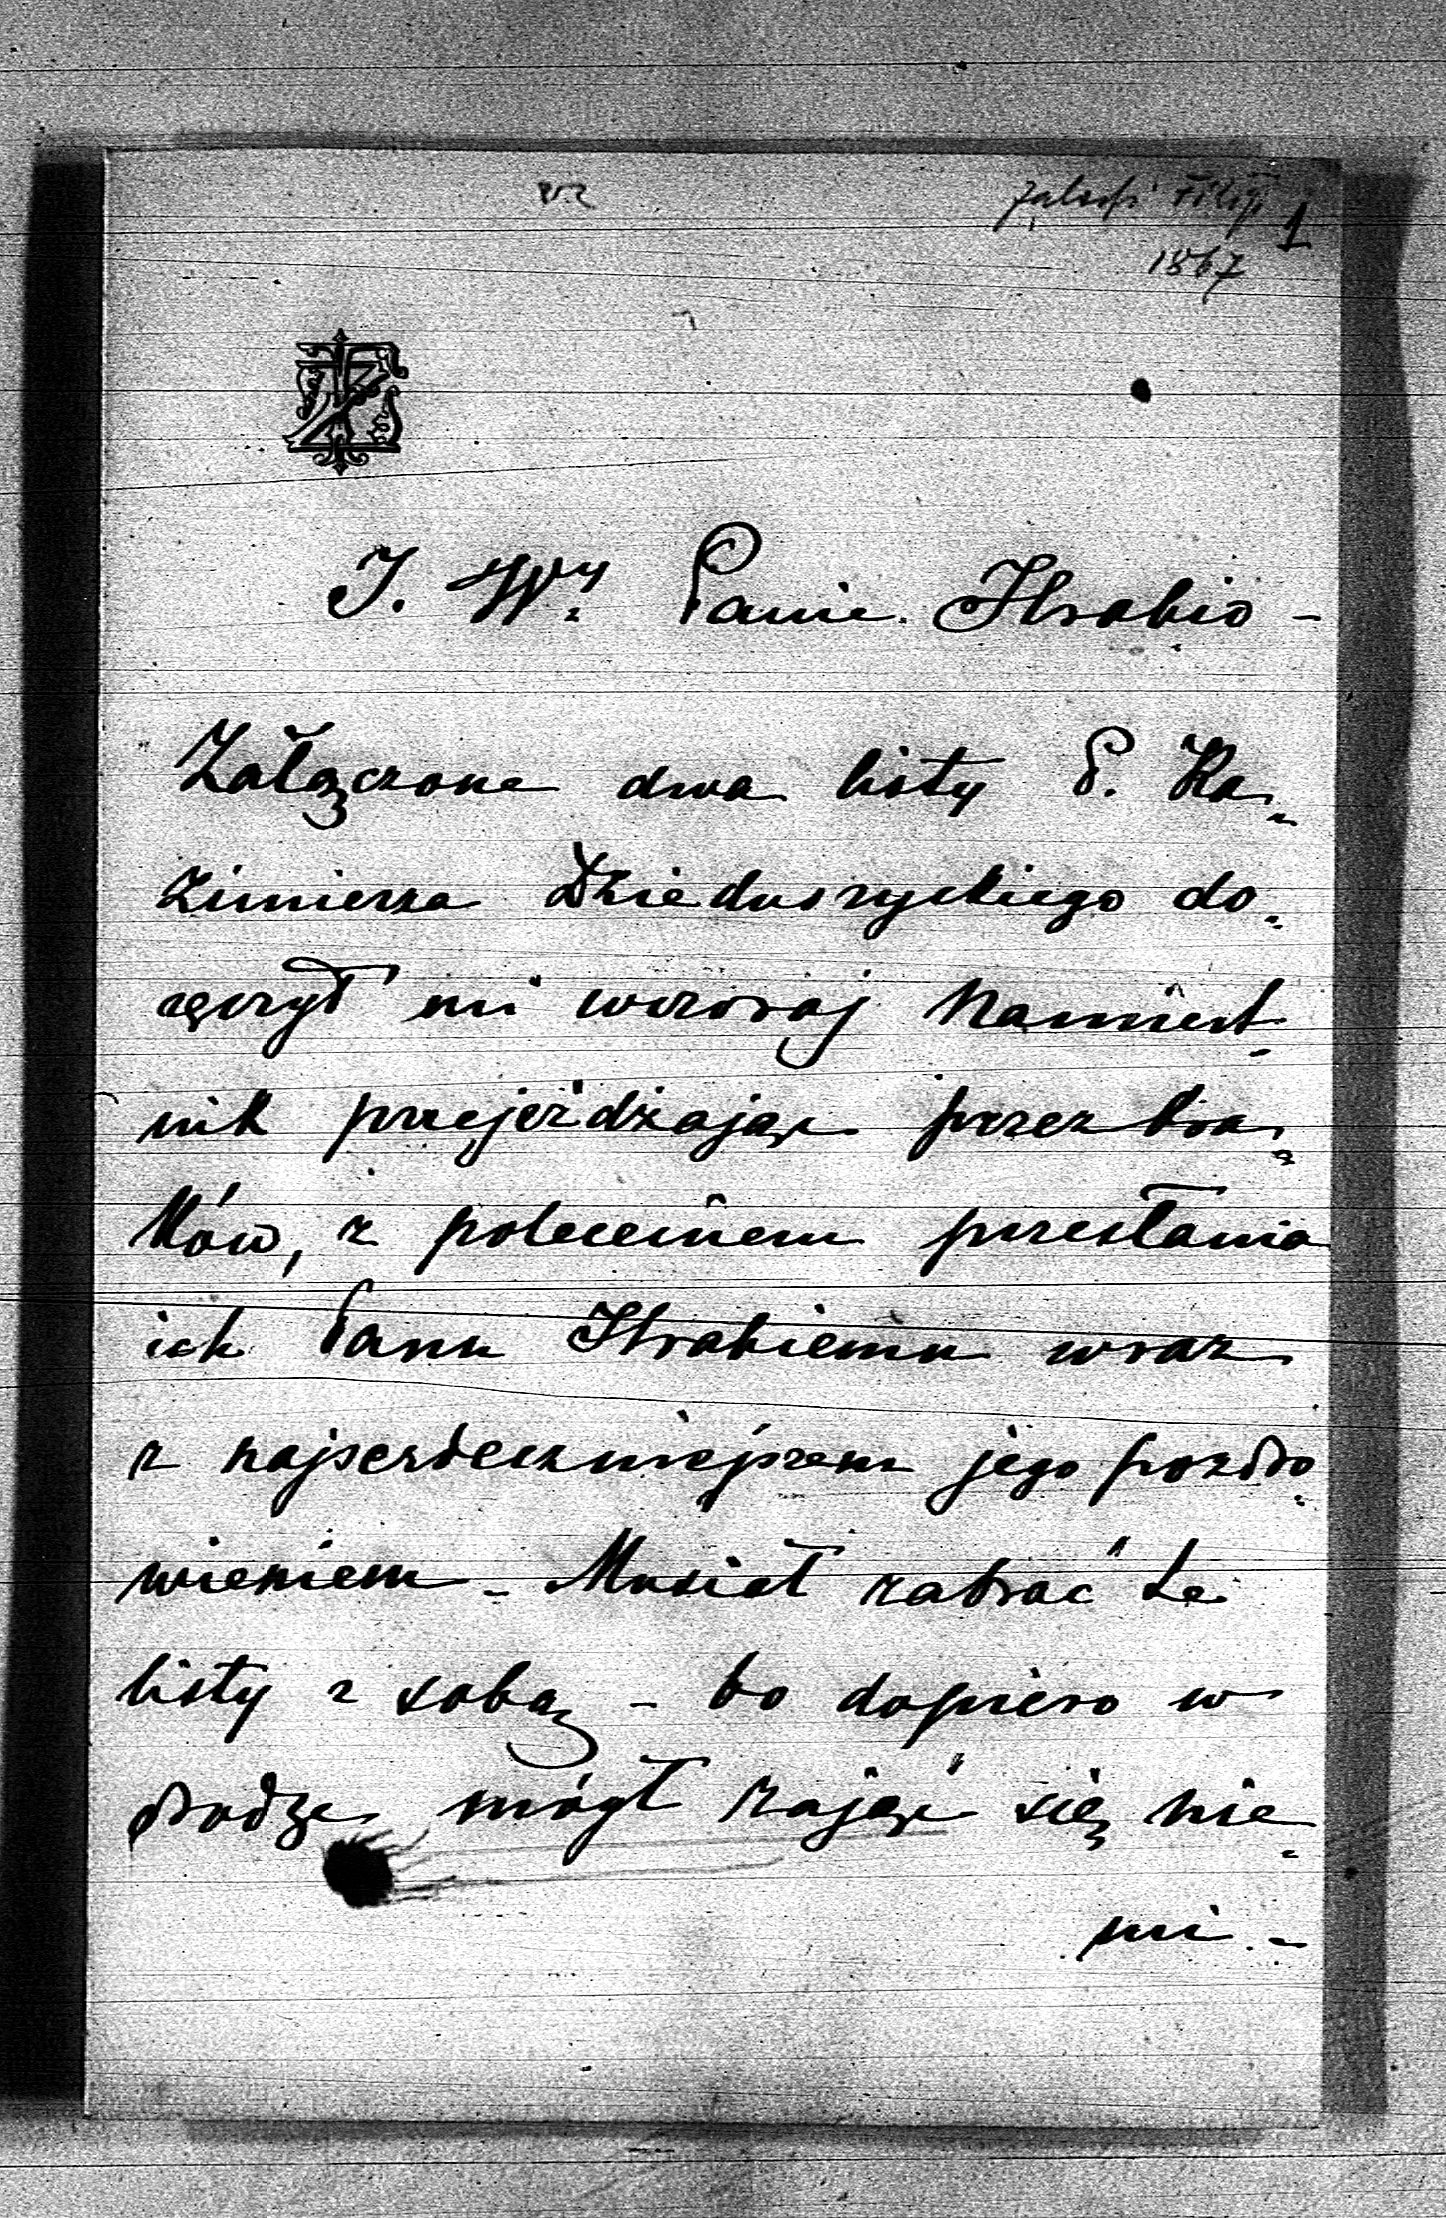 Zaleski Filip 1
1867
J. Wy Panie Hrabio -
Załączone dwa listy P. Ka-
zimierza Dzieduszyckiego do-
ręczył mi wczoraj Namiest-
nik przejeżdżając przez Kra-
ków, z poleceniem przesłania
ich Panu Hrabiemu wraz
z najserdeczniejszem jego pozdro-
wieniem - Musiał zabrać te
listy z sobą - bo dopiero w
drodze mógł zająć się nie-
mi. -